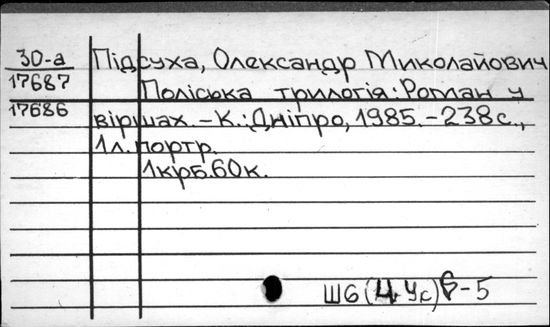 30-а Підсуха, Олександр Миколайович
17687 Поліська трилогія: Роман у
17686 віршах. – К.: Дніпро, 1985. – 238 с.,
1 л. портр.
1 крб. 60 к.
Ш6(4Ук)6-5